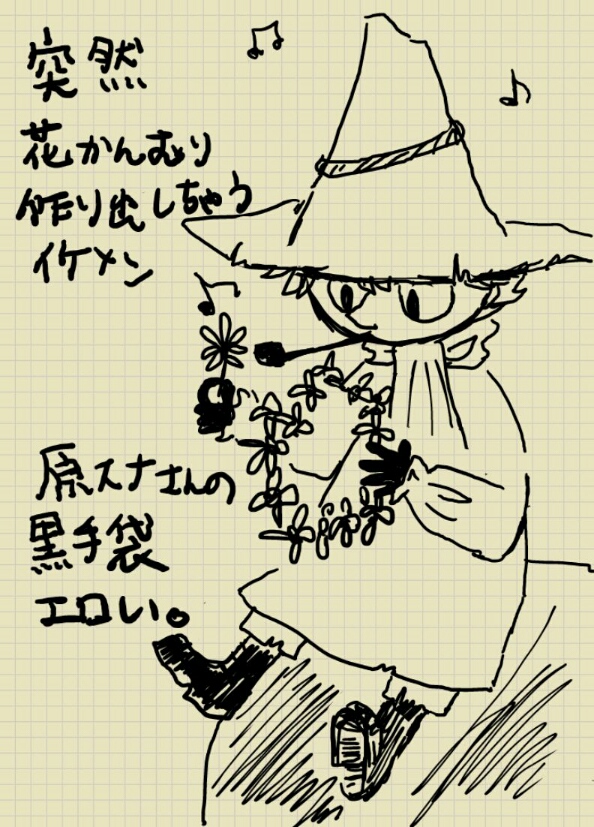 突然
花かんむり
作り出しちゃう
イケメン
原スナさんの
黒手袋
エロい。